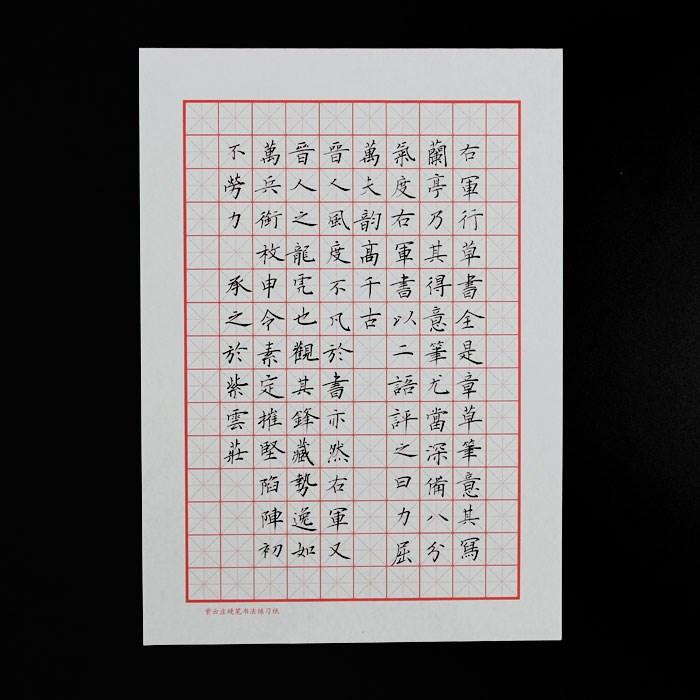 右軍行草書全是章草筆意其寫
蘭亭乃其得意筆尤當深備八分
氣度右軍書以二語評之曰力屈
萬夫韵高千古
晉人風度不凡於書亦然右軍又
晉人之龍虎也觀其鋒藏勢逸如
萬兵銜枚申令素定摧堅陷陣初
不勞力 承之於紫雲莊
紫云庄硬笔书法练习纸